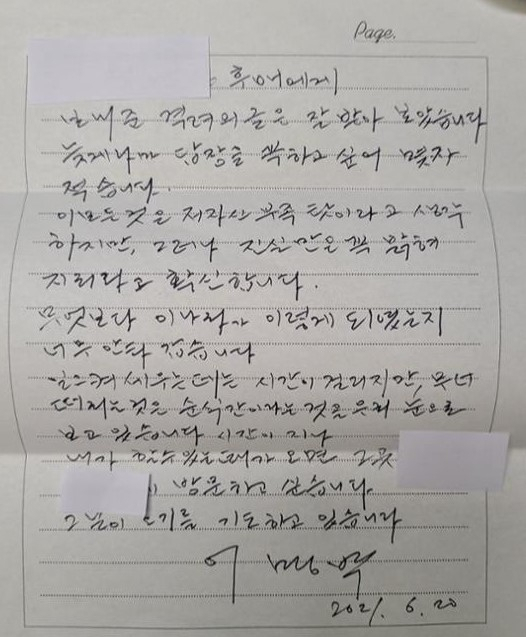 Page.
후배에게
보내준 격려의 글은 잘 받아 보았습니다
늦게나마 답장을 꼭하고 싶어 몇자
적습니다.
이모든것은 저자신 부족 탓이라고 생각
하지만, 그러나 진실만은 꼭 밝혀
지리라고 확신합니다.
무엇보다 이나라가 이렇게 되였는지
너무 안타 깝습니다
일으켜 세우는데는 시간이 걸리지만, 무너
떠리는것은 순식간이라는것을 우리 눈으로
보고 있습니다 시간이 지나
내가 할수있는때가 오면 그곳
방문하고 싶습니다
그날이 오기를 기도하고 있습니다
이 명 박
2021. 6. 20